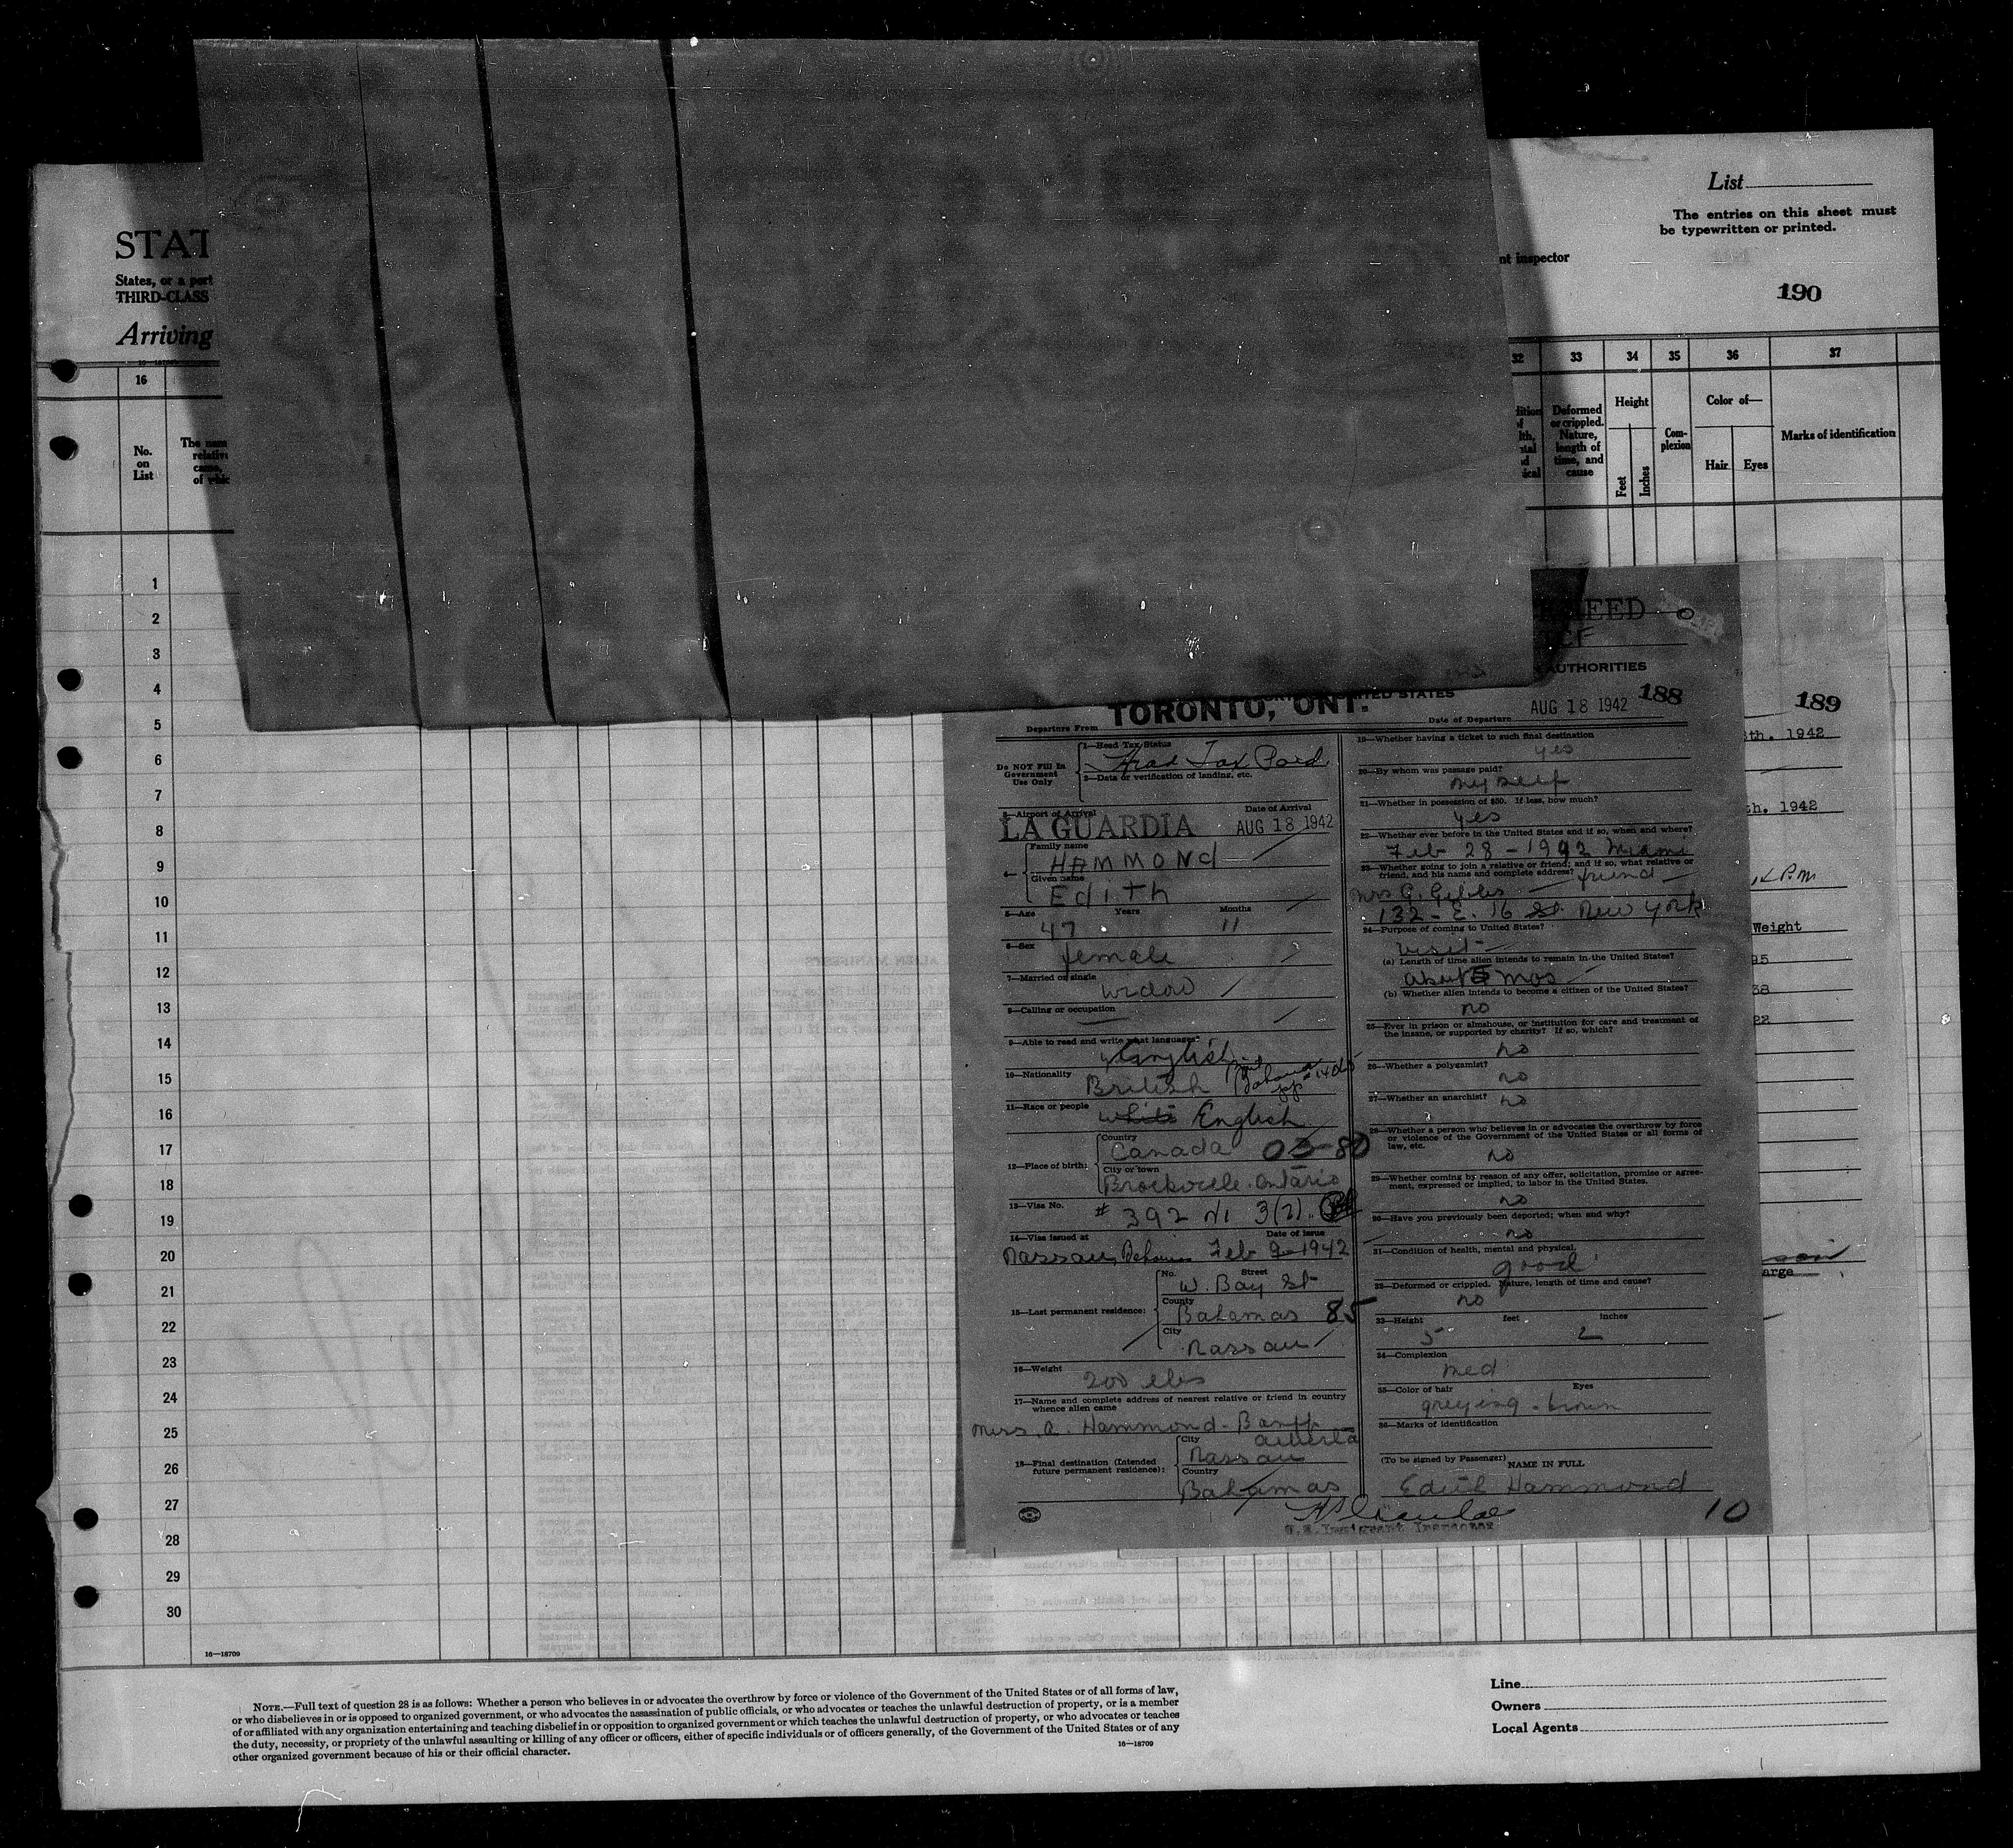 List
The entries on this sheet must
be typewritten or printed.
STAT
States, or a part
THIRD-CLASS
nt inspector
Arriving
190
16
32
33
34
35
36
37
No.
on
List
The nam
relativ
of whic
Deformed
or crippled.
Nature,
length of
time, and
cause
Height
Feet
Inches
Com-
plexion
Color of—
Hair
Eyes
Marks of identification
1
2
3
4
5
6
7
8
9
10
11
12
13
14
15
16
17
18
19
20
21
22
23
24
25
26
27
28
29
30
AUTHORITIES
188
189
TORONTO, ONT.
Departure From
Date of Departure
AUG 18 1942
th. 1942
Do NOT Fill In
Government
Use Only
1—Head Tax Status
Head Tax Paid
2—Data of verification of landing, etc.
3—Airport of Arrival
Date of Arrival
LA GUARDIA AUG 18 1942
4—
Family name
HAMMOND
Given name
Edith
5—Age Years Months
47 11
6—Sex
female
7—Married or single
widow
8—Calling or occupation
9—Able to read and write what languages?
English
10—Nationality
British
11—Race or people
white English
12—Place of birth:
Country
Canada 03-80
City or town
Brockville. Ontario
13—Visa No.
# 392 3(2)
14—Visa issued at Date of issue
Nassau, Feb 9-1942
15—Last permanent residence:
No. Street
W. Bay St
County
Bahamas 85
City
Nassau
16—Weight
200 lbs
17—Name and complete address of nearest relative or friend in country
whence alien came
A. Hammond - Banff
Alberta
18—Final destination (Intended
future permanent residence):
City
Nassau
Country
Bahamas
19—Whether having a ticket to such final destination
yes
20—By whom was passage paid?
myself
21—Whether in possession of $50. If less, how much?
yes
22—Whether ever before in the United States and if so, when and where?
Feb 28 - 1942 Miami
23—Whether going to join a relative or friend; and if so, what relative or
friend, and his name and complete address?
friend
Mrs G.
132 - E. 16 St. New York
24—Purpose of coming to United States?
visit
(a) Length of time alien intends to remain in the United States?
about 5 mos
(b) Whether alien intends to become a citizen of the United States?
no
25—Ever in prison or almshouse, or institution for care and treatment of
the insane, or supported by charity? If so, which?
no
26—Whether a polygamist?
no
27—Whether an anarchist?
no
28—Whether a person who believes in or advocates the overthrow by force
or violence of the Government of the United States or all forms of
law, etc.
no
29—Whether coming by reason of any offer, solicitation, promise or agree-
ment, expressed or implied, to labor in the United States.
no
30—Have you previously been deported; when and why?
no
31—Condition of health, mental and physical.
good
32—Deformed or crippled. Nature, length of time and cause?
no
33—Height feet inches
5 2
34—Complexion
med
35—Color of hair Eyes
greying - brown
36—Marks of identification
(To be signed by Passenger) NAME IN FULL
Edith Hammond
U.S. Immigrant Inspector
10
th. 1942
Weight
95
38
22
arge
16—18709
NOTE.—Full text of question 28 is as follows: Whether a person who believes in or advocates the overthrow by force or violence of the Government of the United States or of all forms of law,
or who disbelieves in or is opposed to organized government, or who advocates the assassination of public officials, or who advocates or teaches the unlawful destruction of property, or is a member
of or affiliated with any organization entertaining and teaching disbelief in or opposition to organized government or which teaches the unlawful destruction of property, or who advocates or teaches
the duty, necessity, or propriety of the unlawful assaulting or killing of any officer or officers, either of specific individuals or of officers generally, of the Government of the United States or of any
other organized government because of his or their official character.
16—18709
Line
Owners
Local Agents